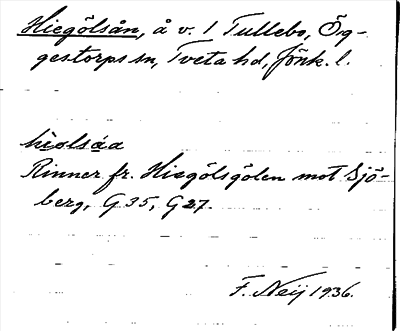 Hiegölsån, å v. l Tullebo, Ög-
gestorps sn, Tveta hd, Jönk. l.
hiolsåa
Rinner fr. Hiegölsgölen mot Sjö-
berg, G 35, G 27.
F. Neij 1936.